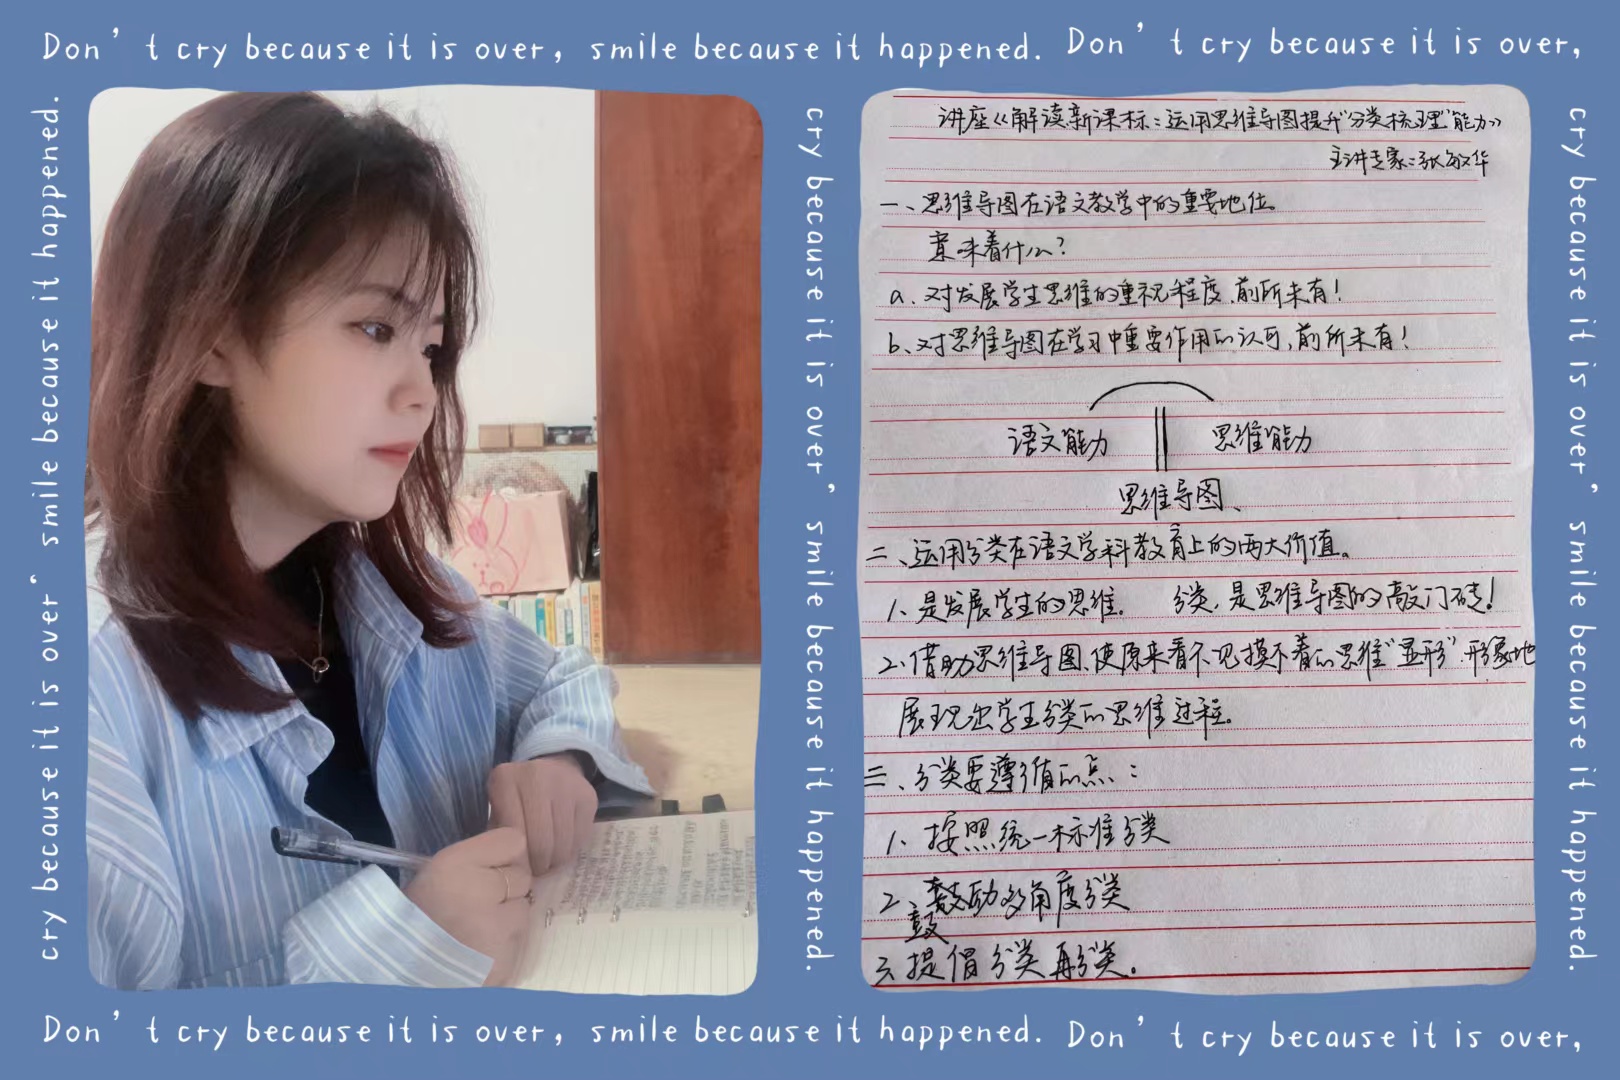 Don't cry because it is over, smile because it happened. Don't cry because it is over,
cry because it is over, smile because it happened.
cry because it is over, smile because it happened.
讲座《解读新课标:运用思维导图提升"分类梳理"能力》
主讲专家:张敏华
一、思维导图在语文教学中的重要地位。
意味着什么?
a、对发展学生思维的重视程度,前所未有!
b、对思维导图在学习中重要作用的认可,前所未有!
语文能力 思维能力
思维导图、
二、运用分类在语文学科教育上的两大价值。
1、是发展学生的思维。 分类,是思维导图的敲门砖!
2、借助思维导图,使原来看不见摸不着的思维"显形",形象地
展现出学生分类的思维过程。
三、分类要遵循的点:
1、按照统一标准分类
2、鼓励多角度分类
鼓
3、提倡分类再分类。
cry because it is over, smile because it happened.
Don't cry because it is over, smile because it happened. Don't cry because it is over,